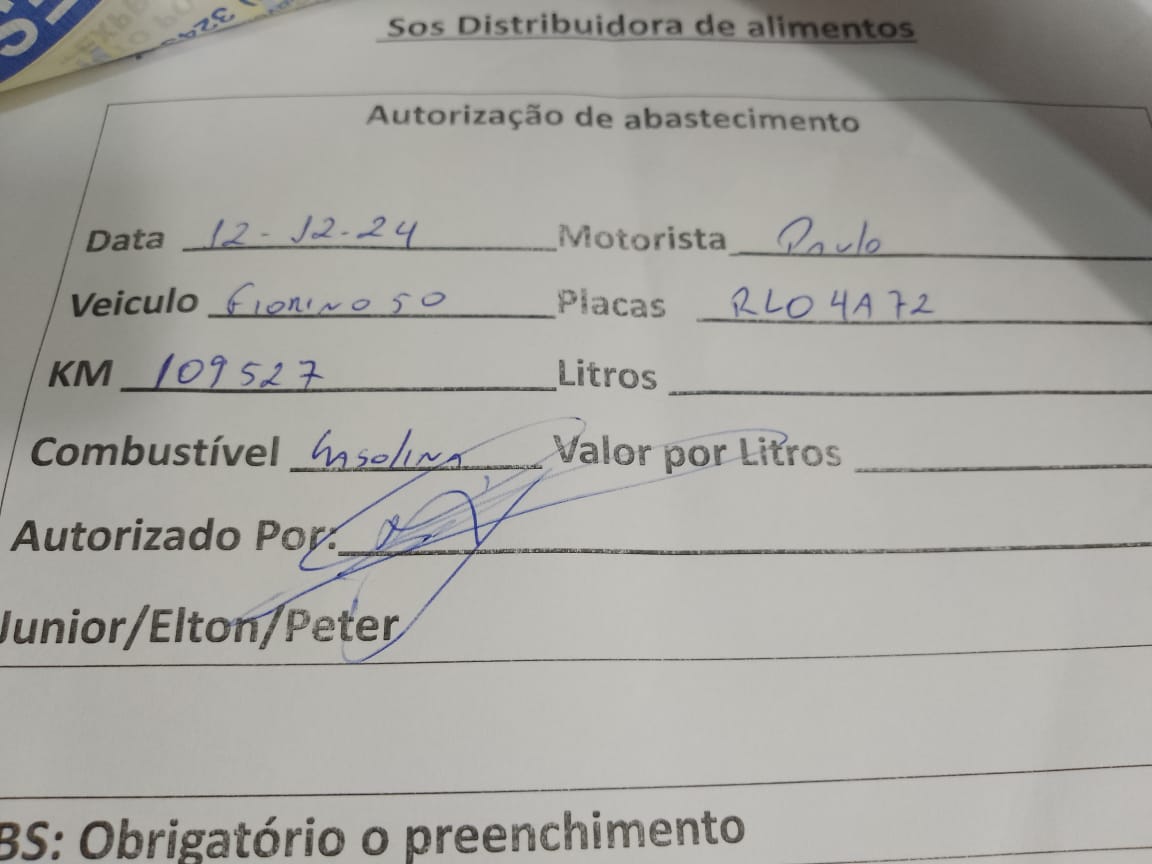 Sos Distribuidora de alimentos
Autorização de abastecimento
Data 12-12-24 Motorista Paulo
Veiculo Fiorino 50 Placas RLO4A72
KM 109527 Litros
Combustível Gasolina Valor por Litros
Autorizado Por:
Junior/Elton/Peter
BS: Obrigatório o preenchimento